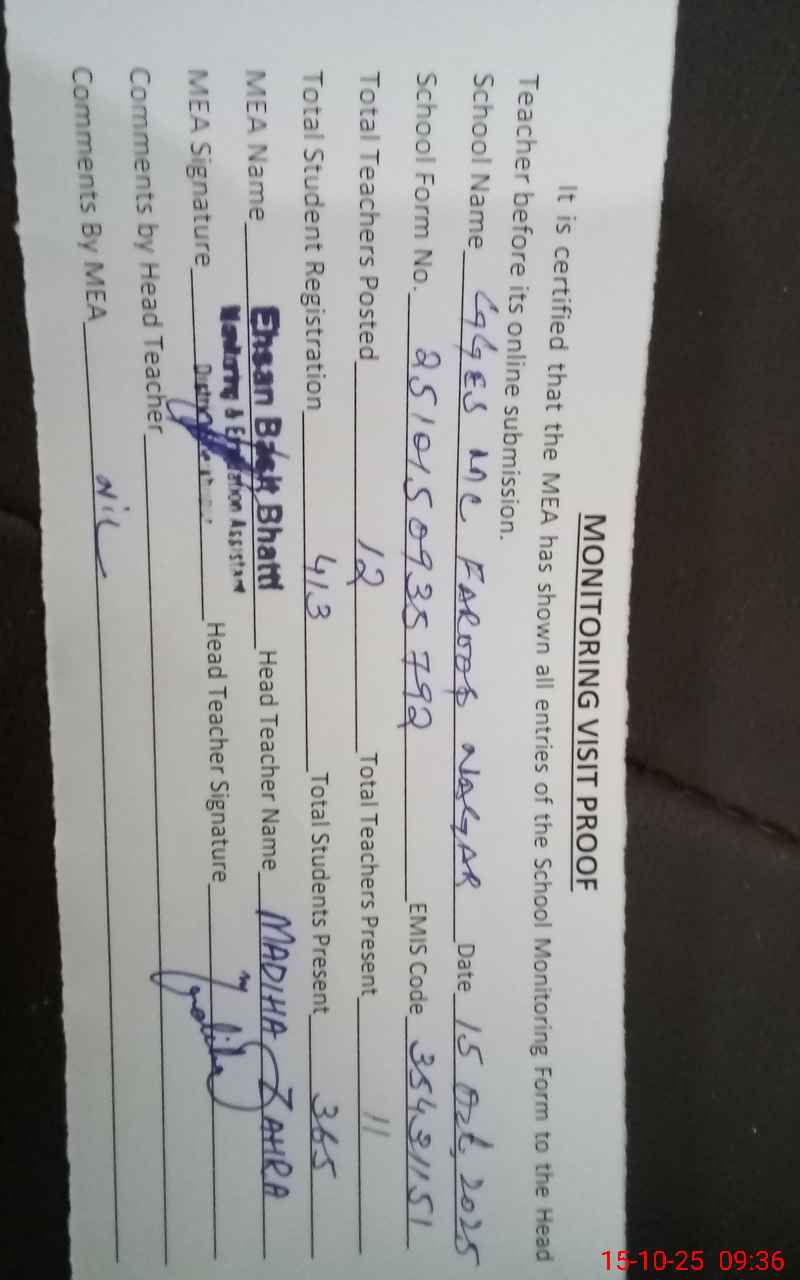 MONITORING VISIT PROOF
It is certified that the MEA has shown all entries of the School Monitoring Form to the Head
Teacher before its online submission.
School Name GGES MC FAROOQ NAGAR Date 15 Oct, 2025
School Form No. 2510150935792 EMIS Code 35431151
Total Teachers Posted 12 Total Teachers Present 11
Total Student Registration 413 Total Students Present 365
MEA Name Ehsan Bhatti Head Teacher Name MADIHA ZAHRA
Monitoring & Evaluation Assistant
MEA Signature Head Teacher Signature Madiha
Comments by Head Teacher
Comments By MEA Nil
15-10-25 09:36